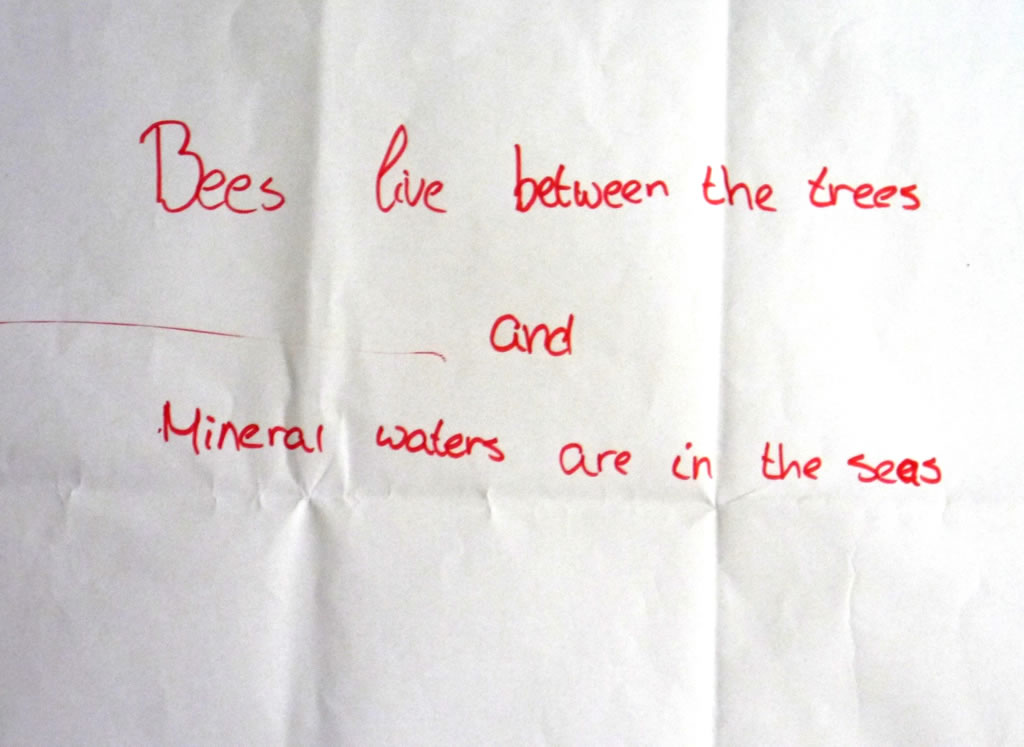 Bees live between the trees
and
Mineral waters are in the seas